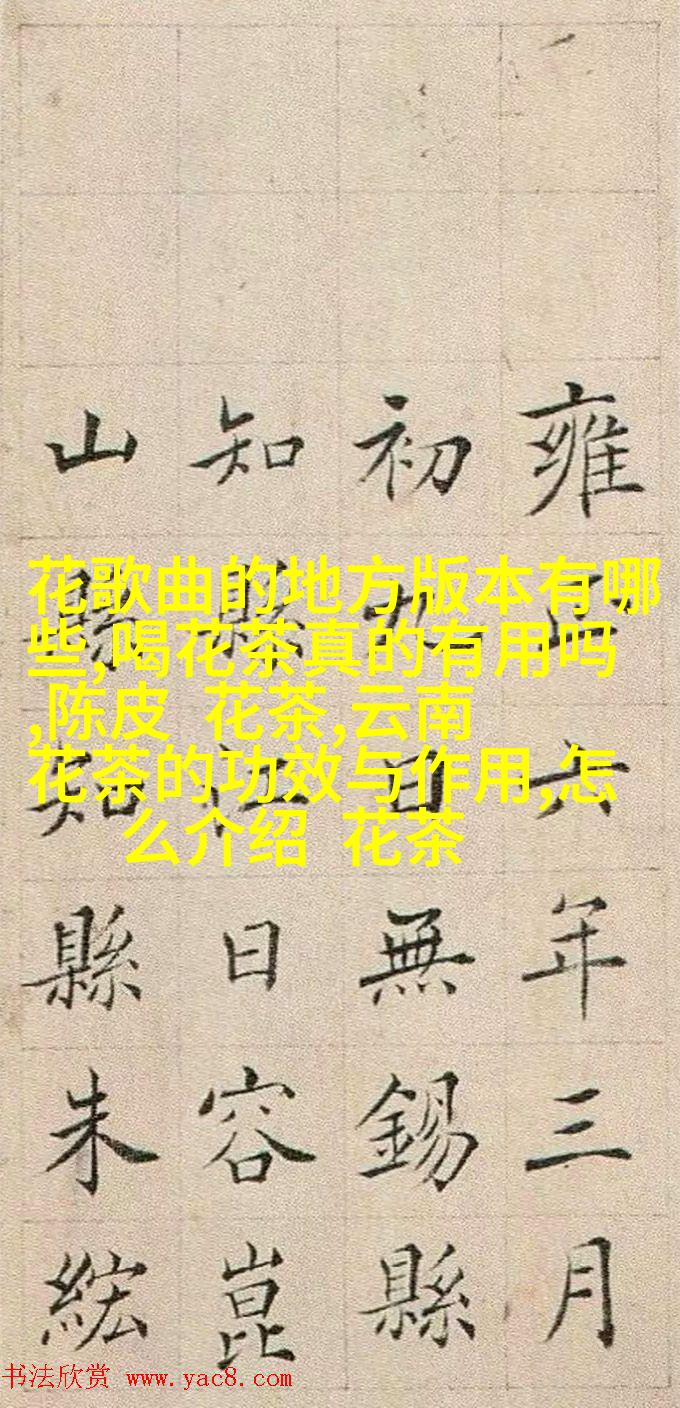 花歌曲的地方版本有哪
些,喝花茶真的有用吗
,陈皮 花茶,云南
花茶的功效与作用,怎
么介绍 花茶
雍正六年三月
初九日無錫縣
知縣江日容崑
山縣知縣朱紘
书法欣赏 www.yac8.com